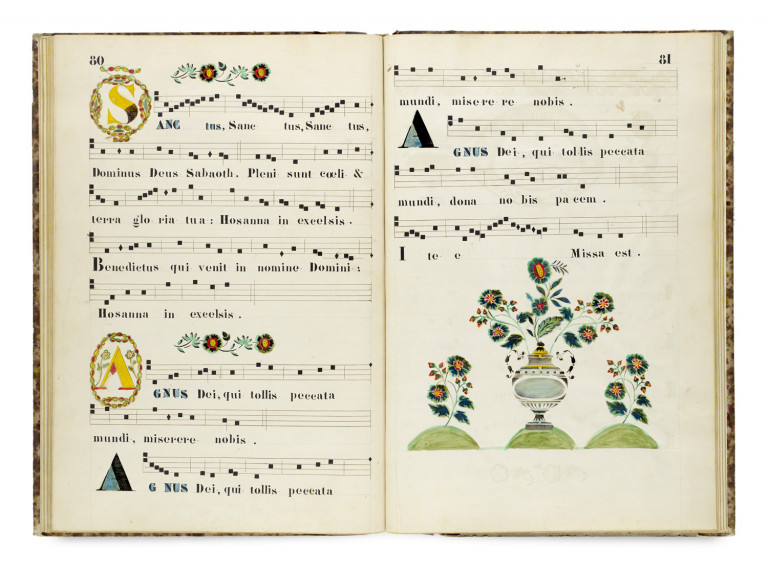 80
SANC tus, Sanc tus, Sanc tus,
Dominus Deus Sabaoth. Pleni sunt cœli &
terra glo ria tua: Hosanna in excelsis.
Benedictus qui venit in nomine Domini:
Hosanna in excelsis.
AGNUS Dei, qui tollis peccata
mundi, miserere nobis.
AGNUS Dei, qui tollis peccata
81
mundi, misere re nobis.
AGNUS Dei, qui tollis peccata
mundi, dona no bis pa cem.
I te e Missa est.